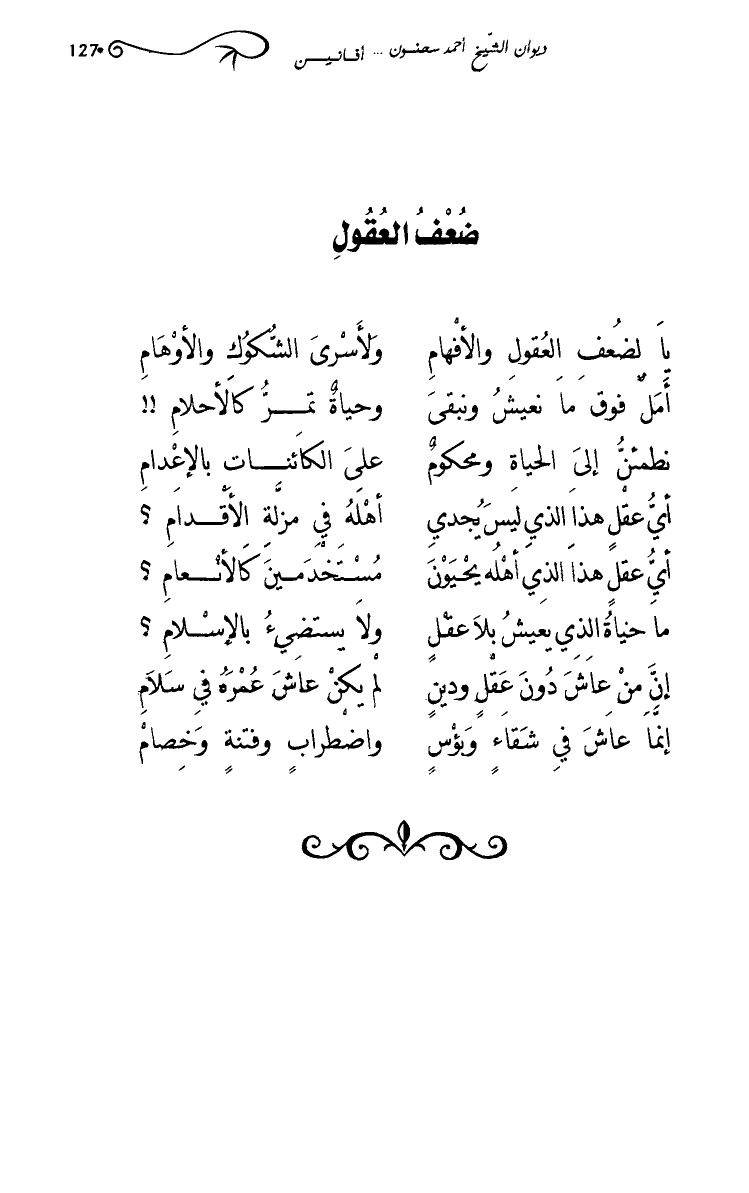 ديوان الشّيخ أحمد سحنون ... أفانين 127
ضُعْفُ العُقُولِ
يَا لضُعفِ العُقولِ والأفْهامِ ولأَسْرىَ الشُّكوُكِ والأوْهَامِ
أَمَلٌ فوق ما نعيشُ ونبقىَ وحياةٌ تمرُّ كالأحلامِ !!
نطمئنُّ إلىَ الحياةِ ومحكومٌ علىَ الكائنات بالإعْدامِ
أيُّ عقْلٍ هذا الذي ليسَ يُجدي أهْلَهُ في مزلَّةِ الأَقْدامِ ؟
أيُّ عقلٍ هذا الذي أهْلُه يحْيَوْنَ مُسْتخْدَمينَ كالأنْعامِ ؟
ما حياةُ الذي يعيشُ بلاَ عقْلٍ ولا يستضيءُ بالإسْلامِ ؟
إنَّ مَنْ عاشَ دُونَ عَقْلٍ ودينٍ لمْ يكنْ عاشَ عُمْرَهُ في سَلاَمِ
إنَّما عاشَ في شَقاءٍ وَبؤْسٍ واضْطرابٍ وفتنةٍ وَخِصامْ